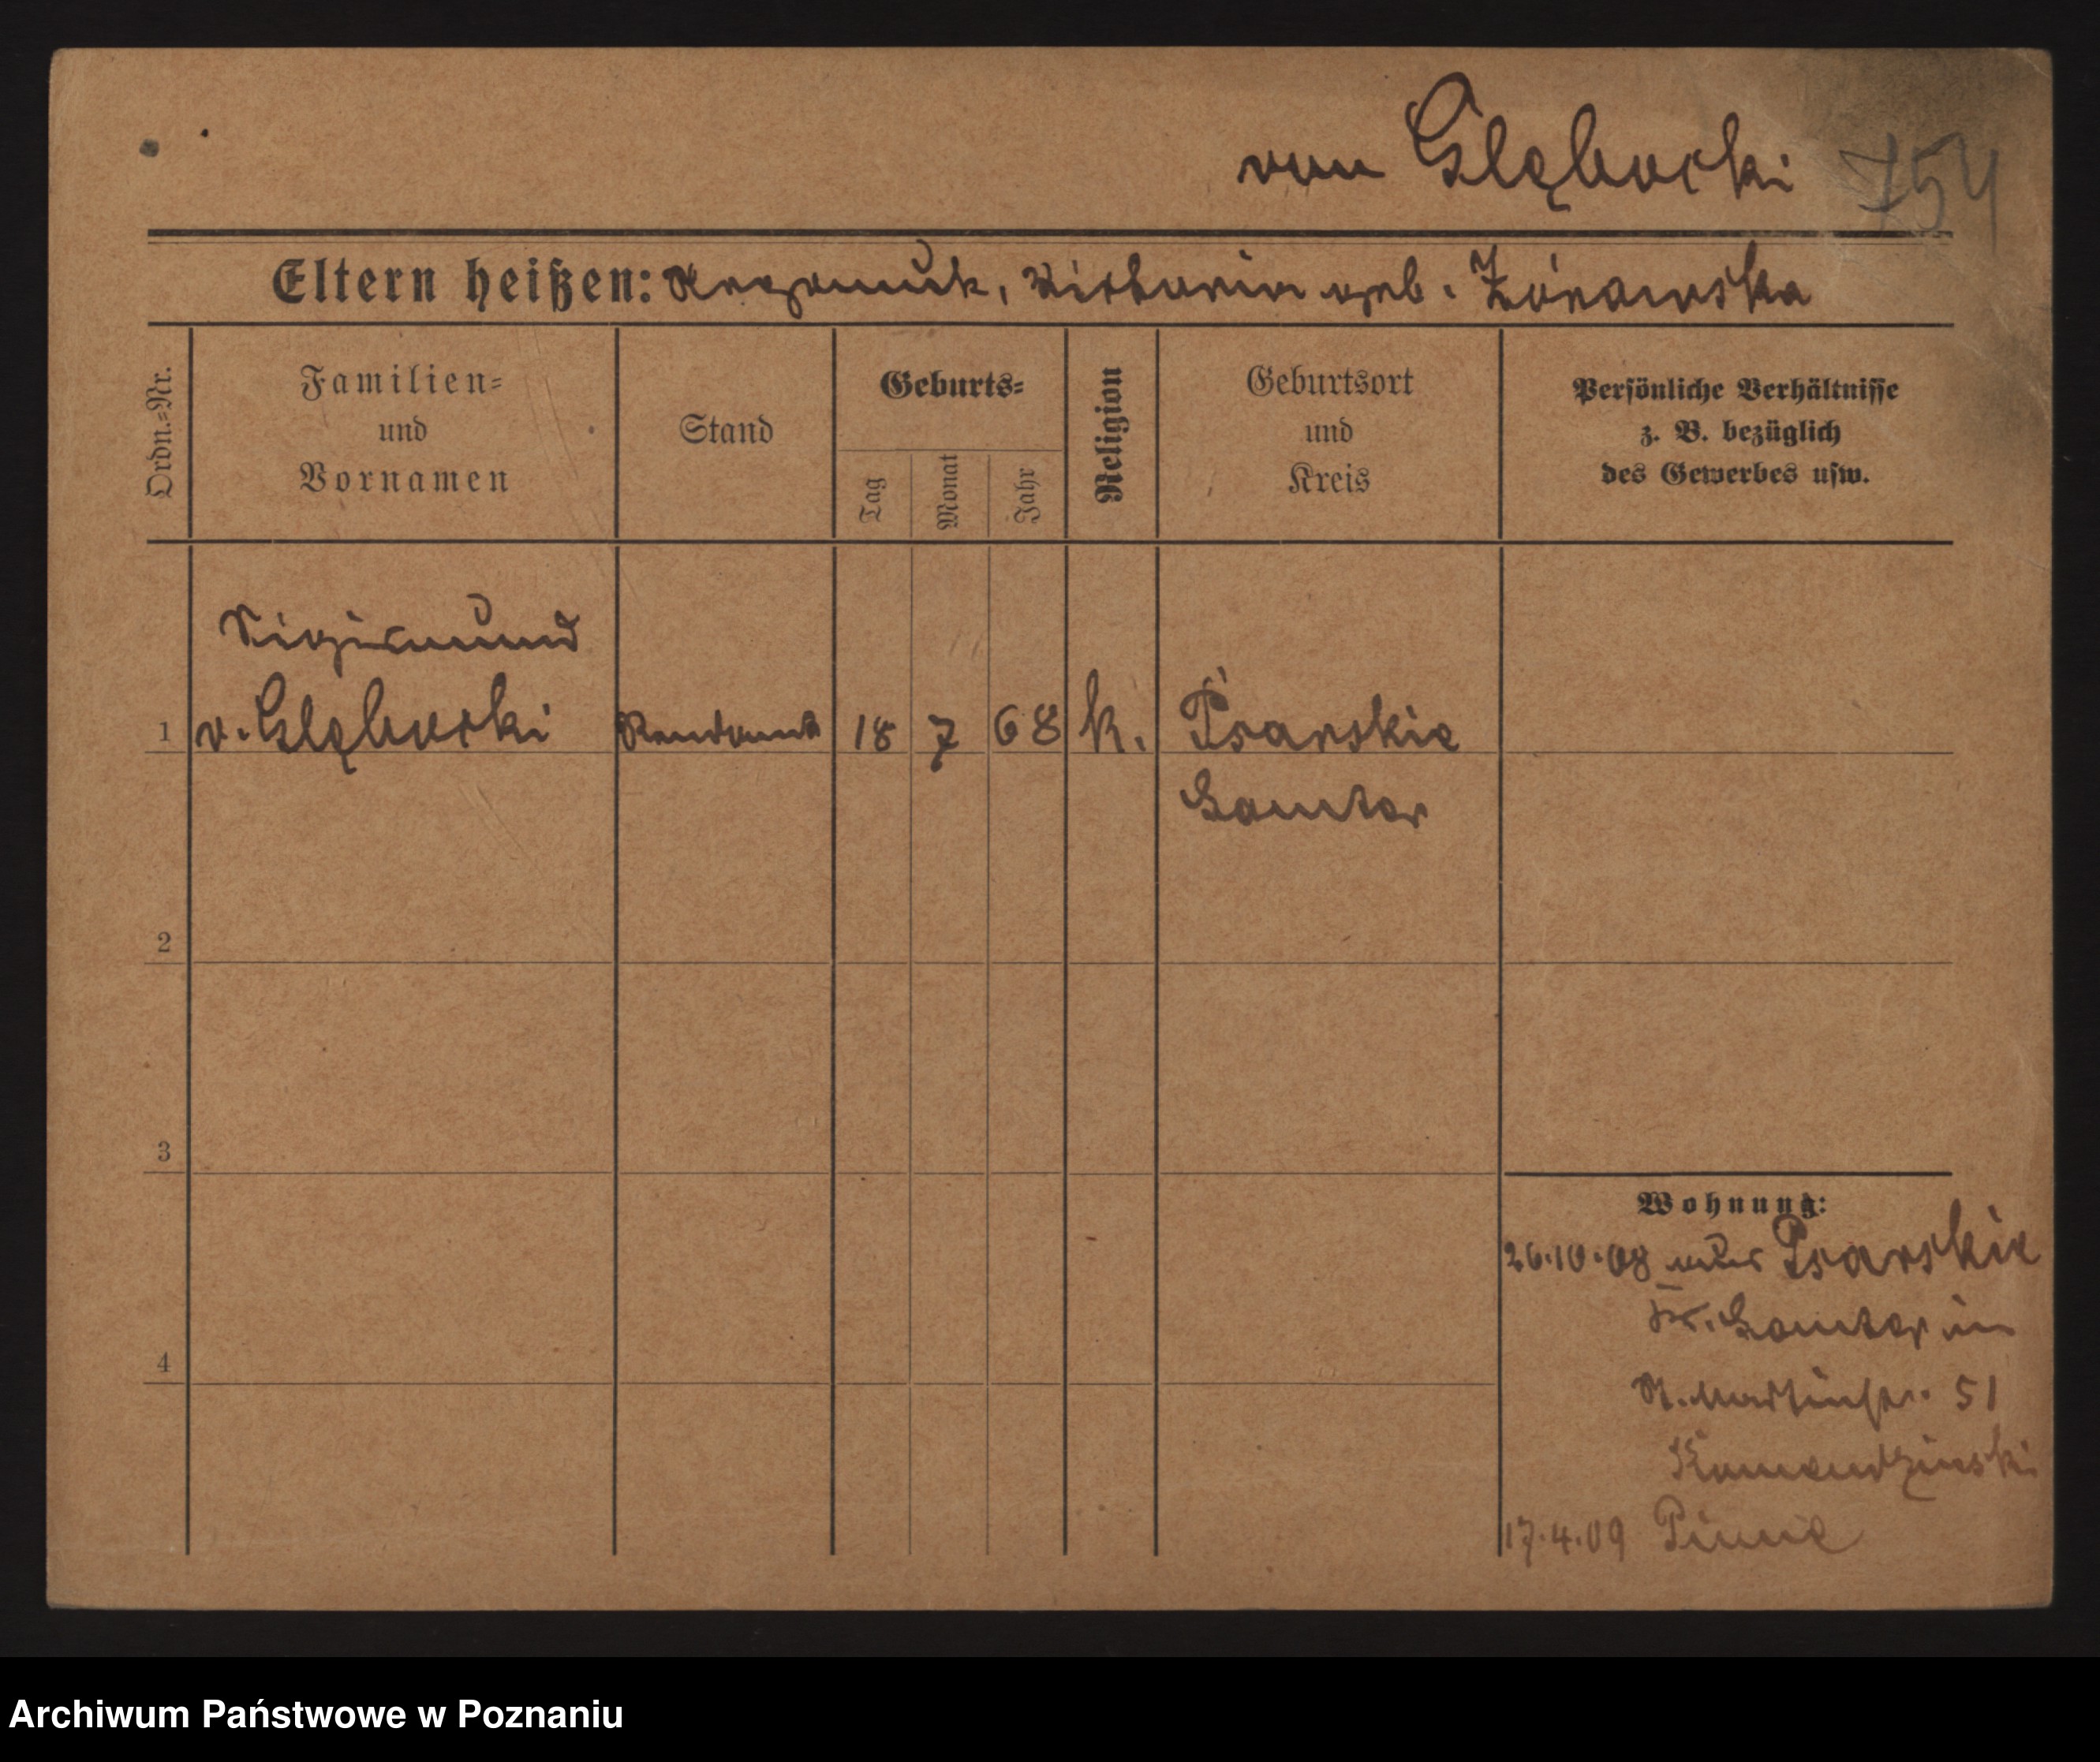 von Głębocki 754
Eltern heißen: Nepomuk, Viktoria geb. Żórawska
Ordn.=Nr.
Familien=
und
Vornamen
Stand
Geburts=
Tag
Monat
Jahr
Religion
Geburtsort
und
Kreis
Persönliche Verhältnisse
z. B. bezüglich
des Gewerbes usw.
Sigismund
1 v. Głębocki Rendant 18 7 68 k. Psarskie
Samter
2
3
4
Wohnung:
26.10.08 aus Psarskie
Kr. Samter in
St. Martinstr. 51
17.4.09 Pinne
Archiwum Państwowe w Poznaniu